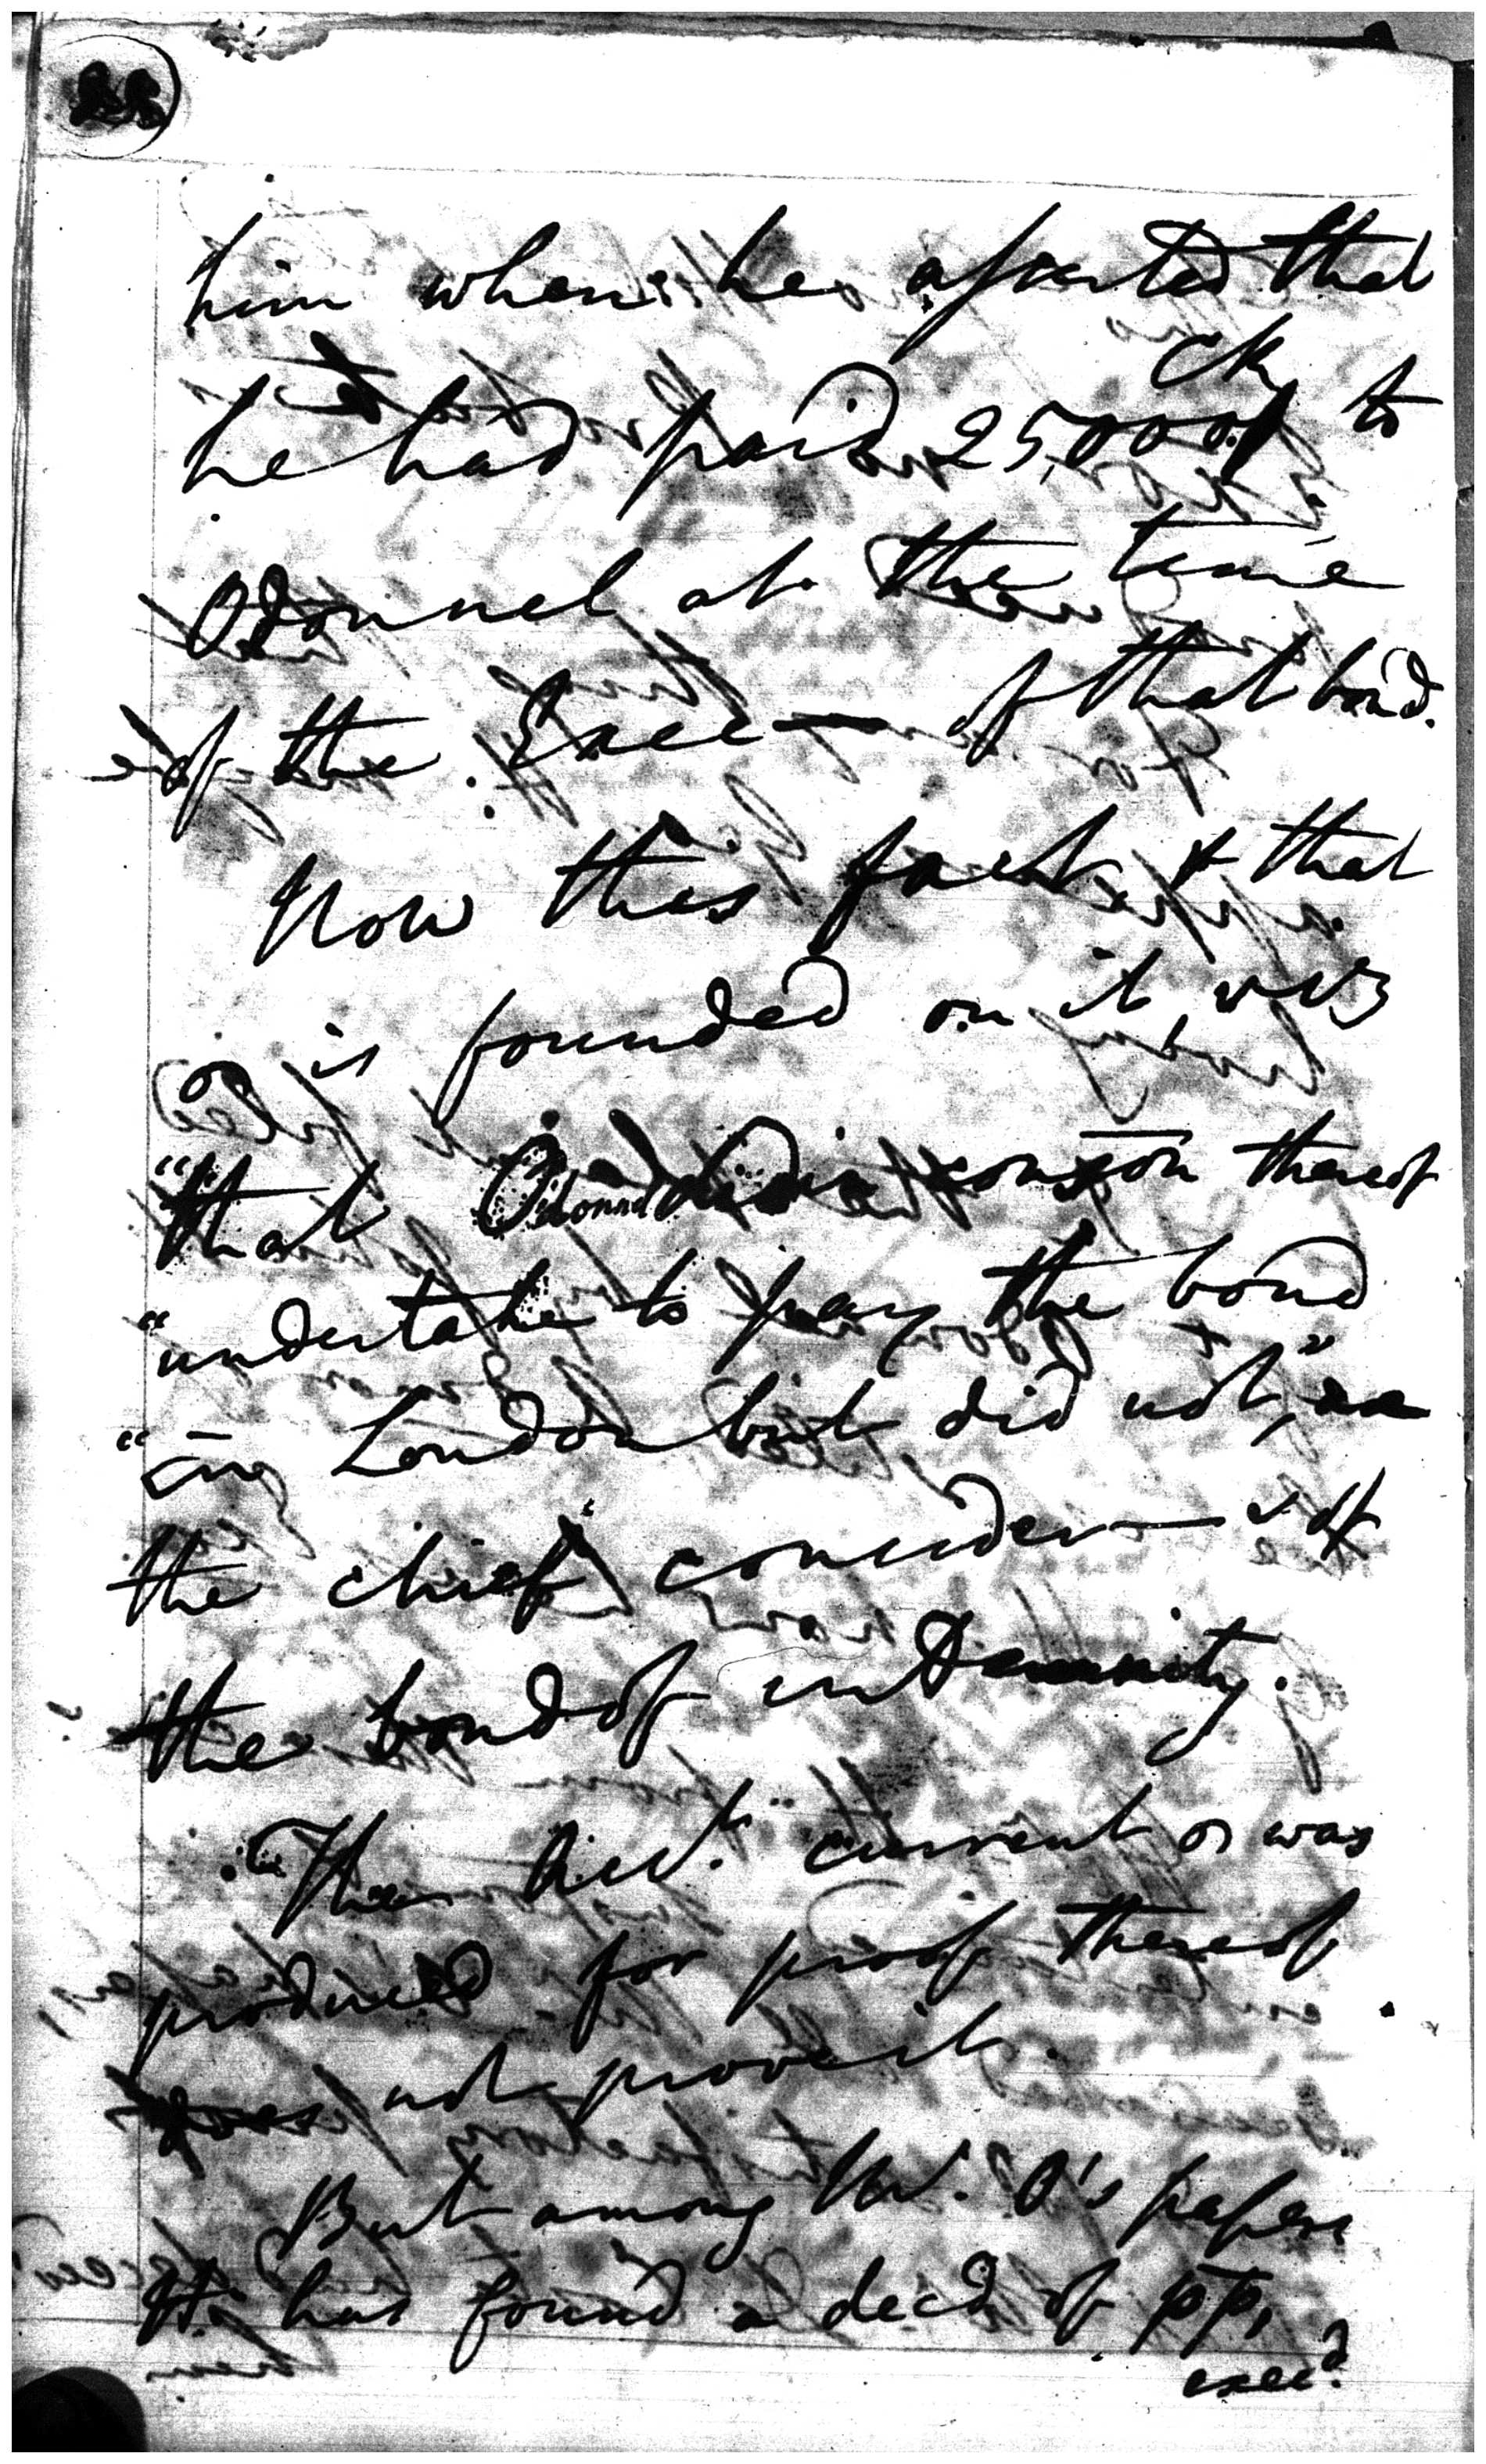 him when he asserted that
he had paid 25,000 ck to
Odonnel at the time
of the Exec— of that bond.
Now this fact, & that
is founded on it, viz
"that Odonnel did in conson thereof
"undertake to pay the bond
"in London but did not,"
the chief consider— of
the bond of indemnity.
The acct. current was
produced for proof thereof
does not prove it.
But among Mr. O's papers
has found a deed of pp,
exec.d